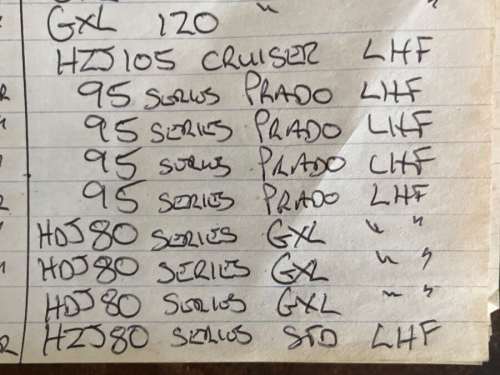 GXL 120 "
HZJ105 CRUISER LHF
R 95 SERIES PRADO LHF
" 95 SERIES PRADO LHF
95 SERIES PRADO LHF
R 95 SERIES PRADO LHF
" HDJ80 SERIES GXL " "
" HDJ80 SERIES GXL " "
HDJ80 SERIES GXL " "
R HZJ80 SERIES STD LHF